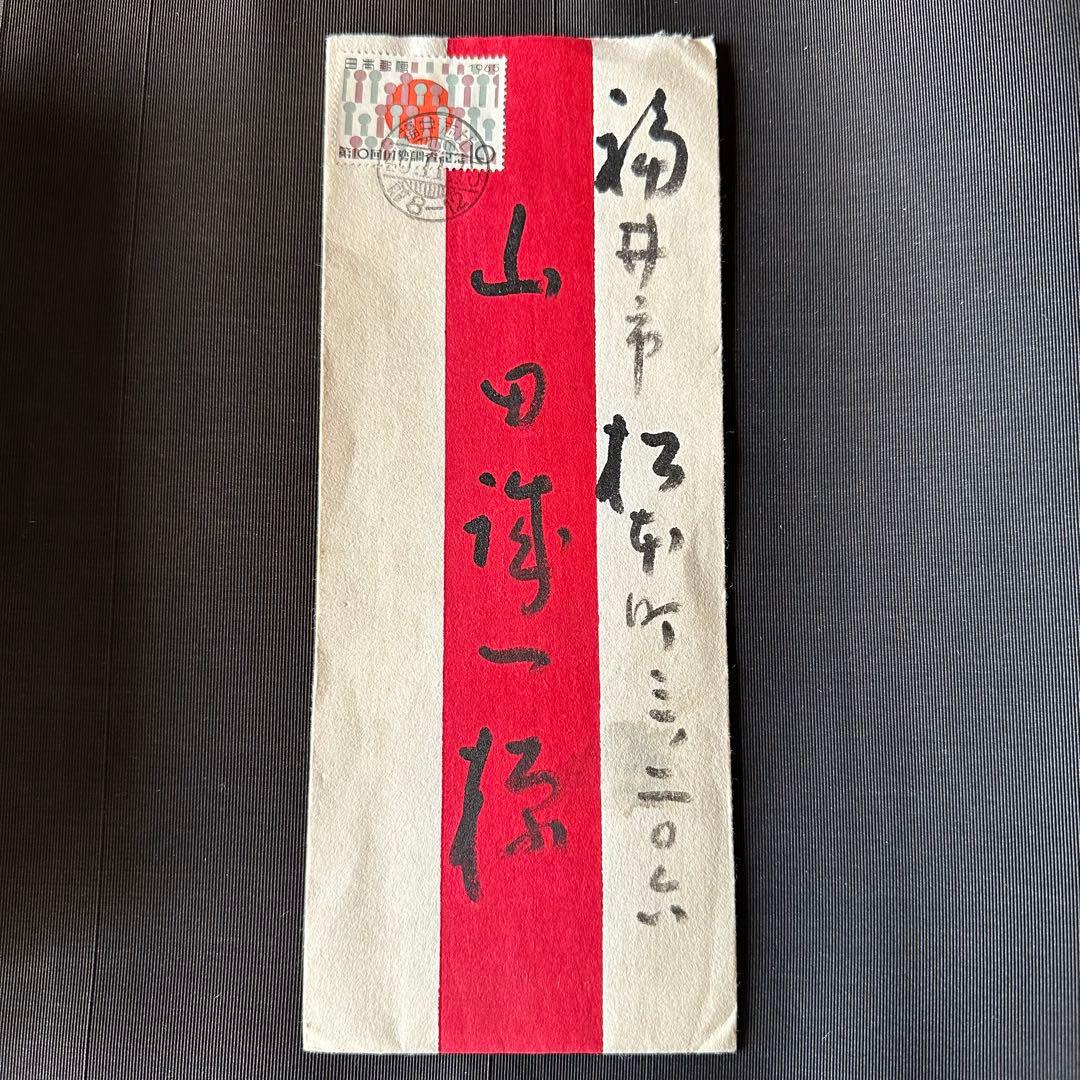 福井市松本町三、二〇六
山田誠一様
日本郵便 1965
第10回国勢調査記念
10
前8-12